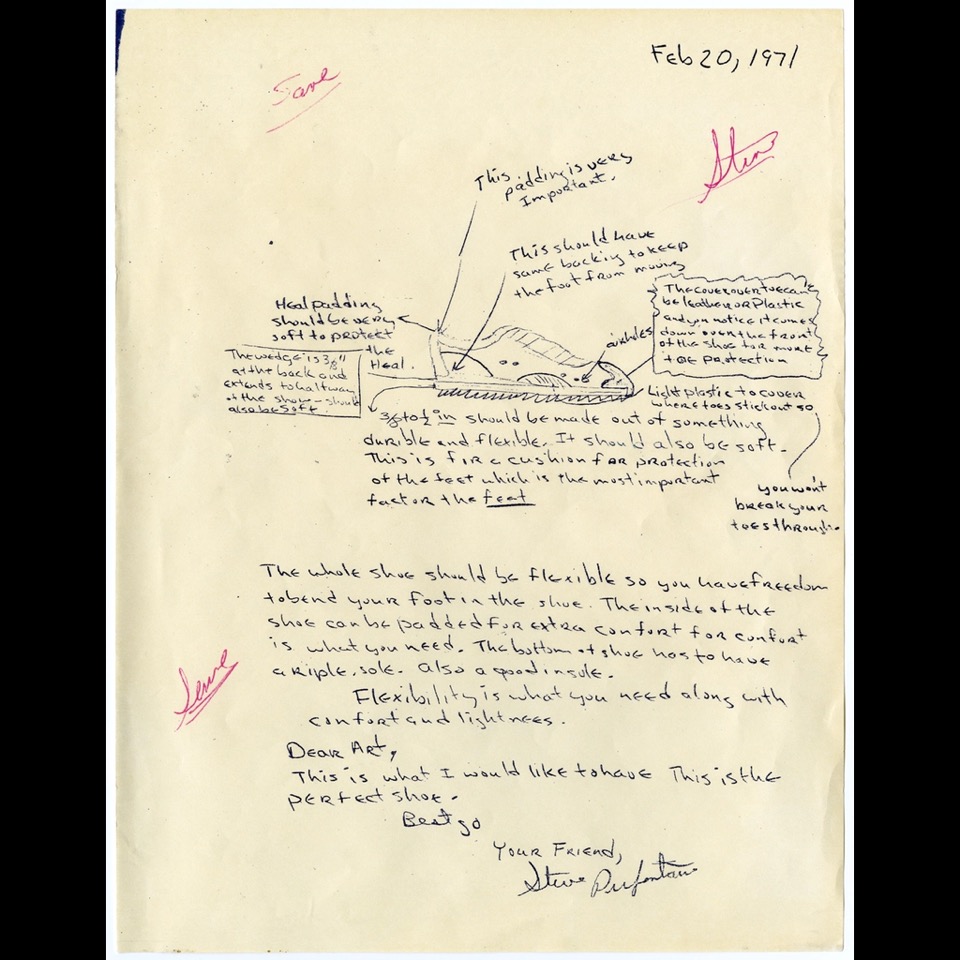 Feb 20, 1971
Save
This padding is very
padding is very
Important.
This should have
same backing to keep
the foot from moving
Heal padding
should be very
soft to protect
the
Heal.
The wedge is 3/8"
at the back and
extends to halfway
of the shoe - should
also be soft.
airholes
The cover over toe can
be leather or Plastic
and you notice it comes
down over the front
of the shoe for more
toe protection
Light plastic to cover
where toes stick out so
you won't
break your
toes through.
3/8 to 1/2 in should be made out of something
durible and flexible. It should also be soft.
This is for a cushion for protection
of the feet which is the most important
factor the feet
The whole shoe should be flexible so you have freedom
to bend your foot in the shoe. The inside of the
shoe can be padded for extra comfort for comfort
is what you need. The bottom of shoe has to have
a riple. sole. Also a good insole.
Flexibility is what you need along with
comfort and lightnees.
Dear Art,
This is what I would like to have This is the
perfect shoe.
Best go
Your Friend,
Steve Prefontaine